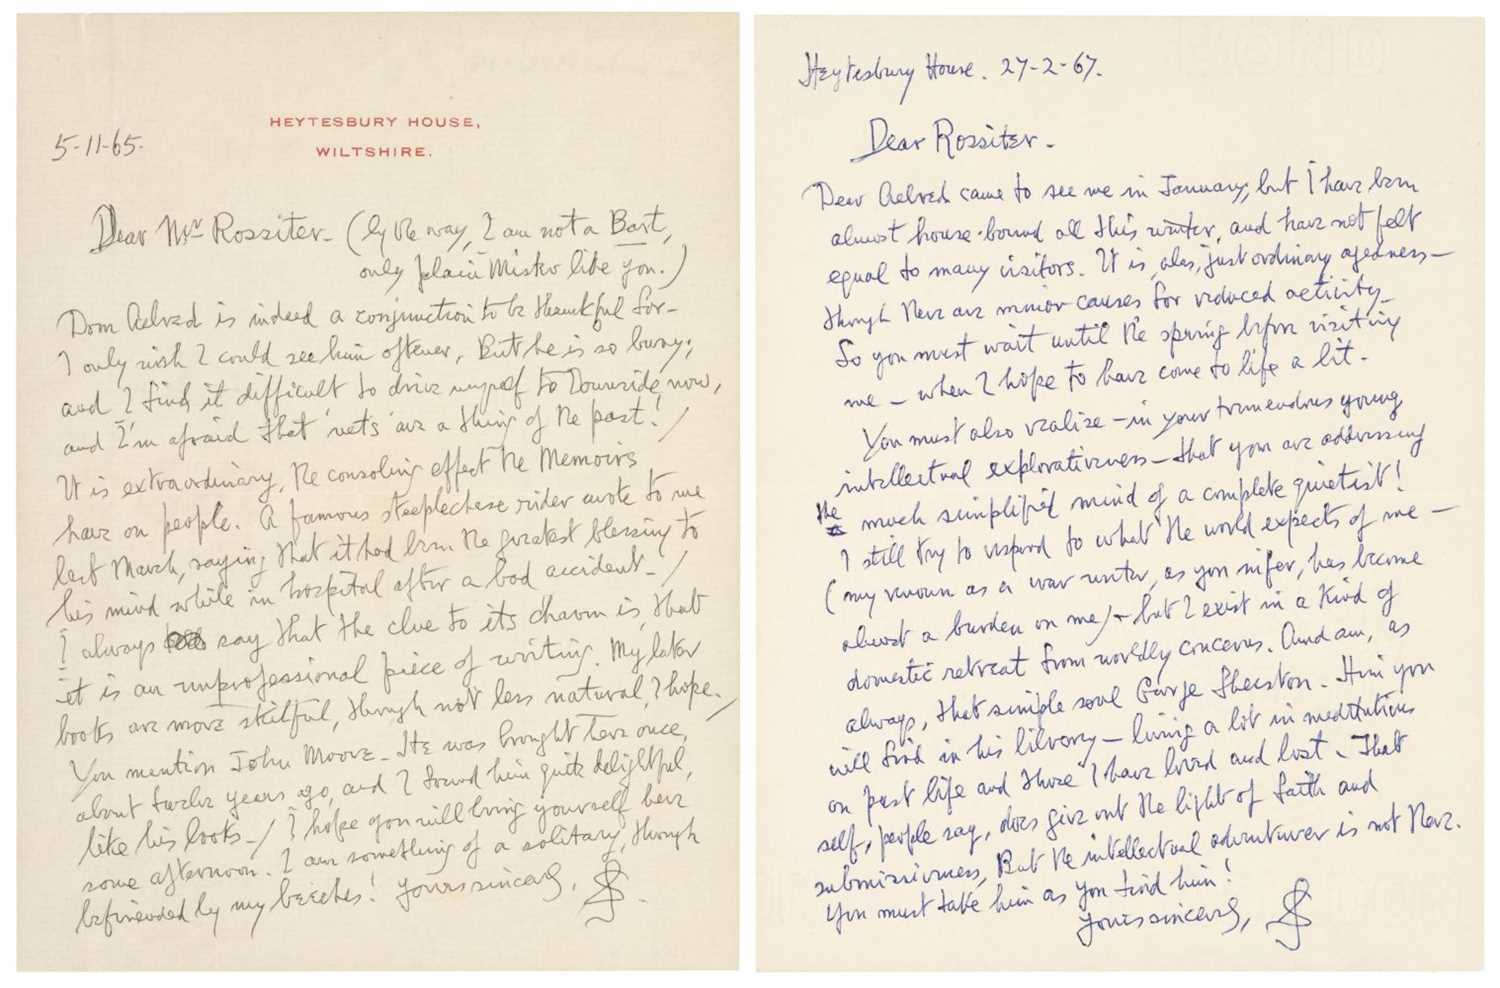 HEYTESBURY HOUSE,
WILTSHIRE.
5-11-65.
Dear Mr Rossiter - (by the way, I am not a Bart,
only plain Mister like you.)
Dom Aelred is indeed a conjunction to be thankful for -
I only wish I could see him oftener, But he is so busy;
and I find it difficult to drive myself to Downside now,
and I'm afraid that 'nets' are a thing of the past! /
It is extraordinary, the consoling effect the Memoirs
have on people. A famous steeplechase rider wrote to me
last March, saying that it had been the greatest blessing to
his mind while in hospital after a bad accident - /
I always say that the clue to its charm is, that
it is an unprofessional piece of writing. My later
books are more skilful, though not less natural, I hope. /
You mention John Moore - He was brought here once,
about twelve years ago, and I found him quite delightful,
like his books - / I hope you will bring yourself here
some afternoon. I am something of a solitary, though
befriended by my beeches! Yours sincerely, SS.
Heytesbury House. 27-2-67.
Dear Rossiter -
Dear Aelred came to see me in January, but I have been
almost house-bound all this winter, and have not felt
equal to many visitors. It is, alas, just ordinary agedness -
though there are minor causes for reduced activity -
So you must wait until the spring before visiting
me - when I hope to have come to life a bit -
You must also realize - in your tremendous young
intellectual explorativeness - that you are addressing
the much simplified mind of a complete quietist!
I still try to respond to what the world expects of me -
(my renown as a war writer, as you infer, has become
almost a burden on me) - but I exist in a kind of
domestic retreat from worldly concerns. And am, as
always, that simple soul George Sherston - Him you
will find in his library - living a lot in meditations
on past life and those I have loved and lost - That
self, people say, does give out the light of faith and
submissiveness, But the intellectual adventurer is not there.
You must take him as you find him!
Yours sincerely, SS